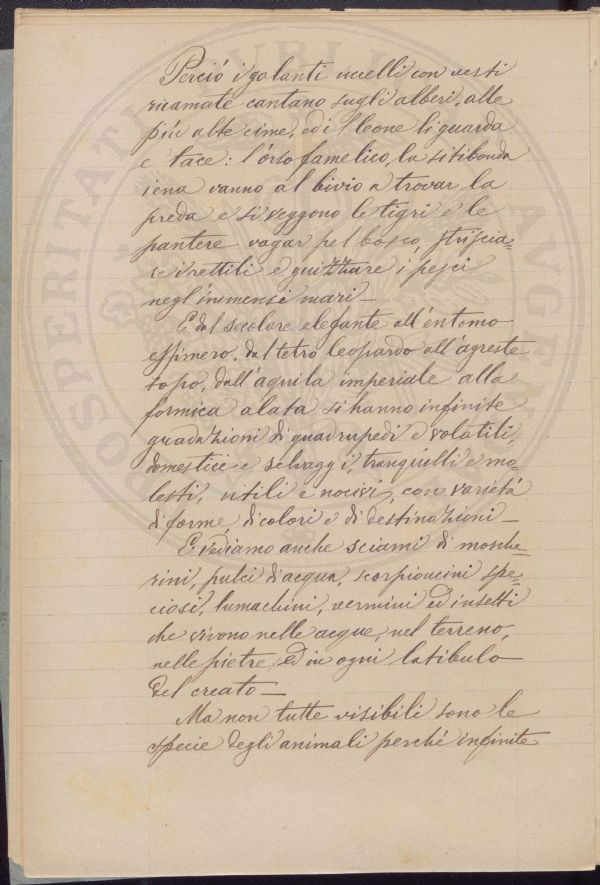 Perció i galanti uccelli con vesti
ricamate cantano sugli alberi, alle
più alte cime, ed il leone li guarda
e tace: l'orso famelico, la sitibonda
iena vanno al bivio a trovar la
preda e si veggono le tigri e le
pantere vagar pel bosco, striscia=
re i rettili e guizzare i pesci
negl'immensi mari —
E dal secolare elefante all'entomo
effimero, dal tetro leopardo all'agreste
topo, dall'aquila imperiale alla
formica alata si hanno infinite
gradazioni di quadrupedi e volatili,
domestici e selvaggi, tranquilli e mo=
lesti, utili e nocivi, con varietá
di forme, di colori e di destinazioni —
E vediamo anche sciami di mosche=
rini, pulci d'acqua, scorpioncini spe=
ciosi, lumachini, vermini ed insetti
che vivono nelle acque, nel terreno,
nelle pietre, ed in ogni latibulo
del creato —
Ma non tutte visibili sono le
specie degli animali perché infinite
PROSPERITATI PUBLI AUGEN